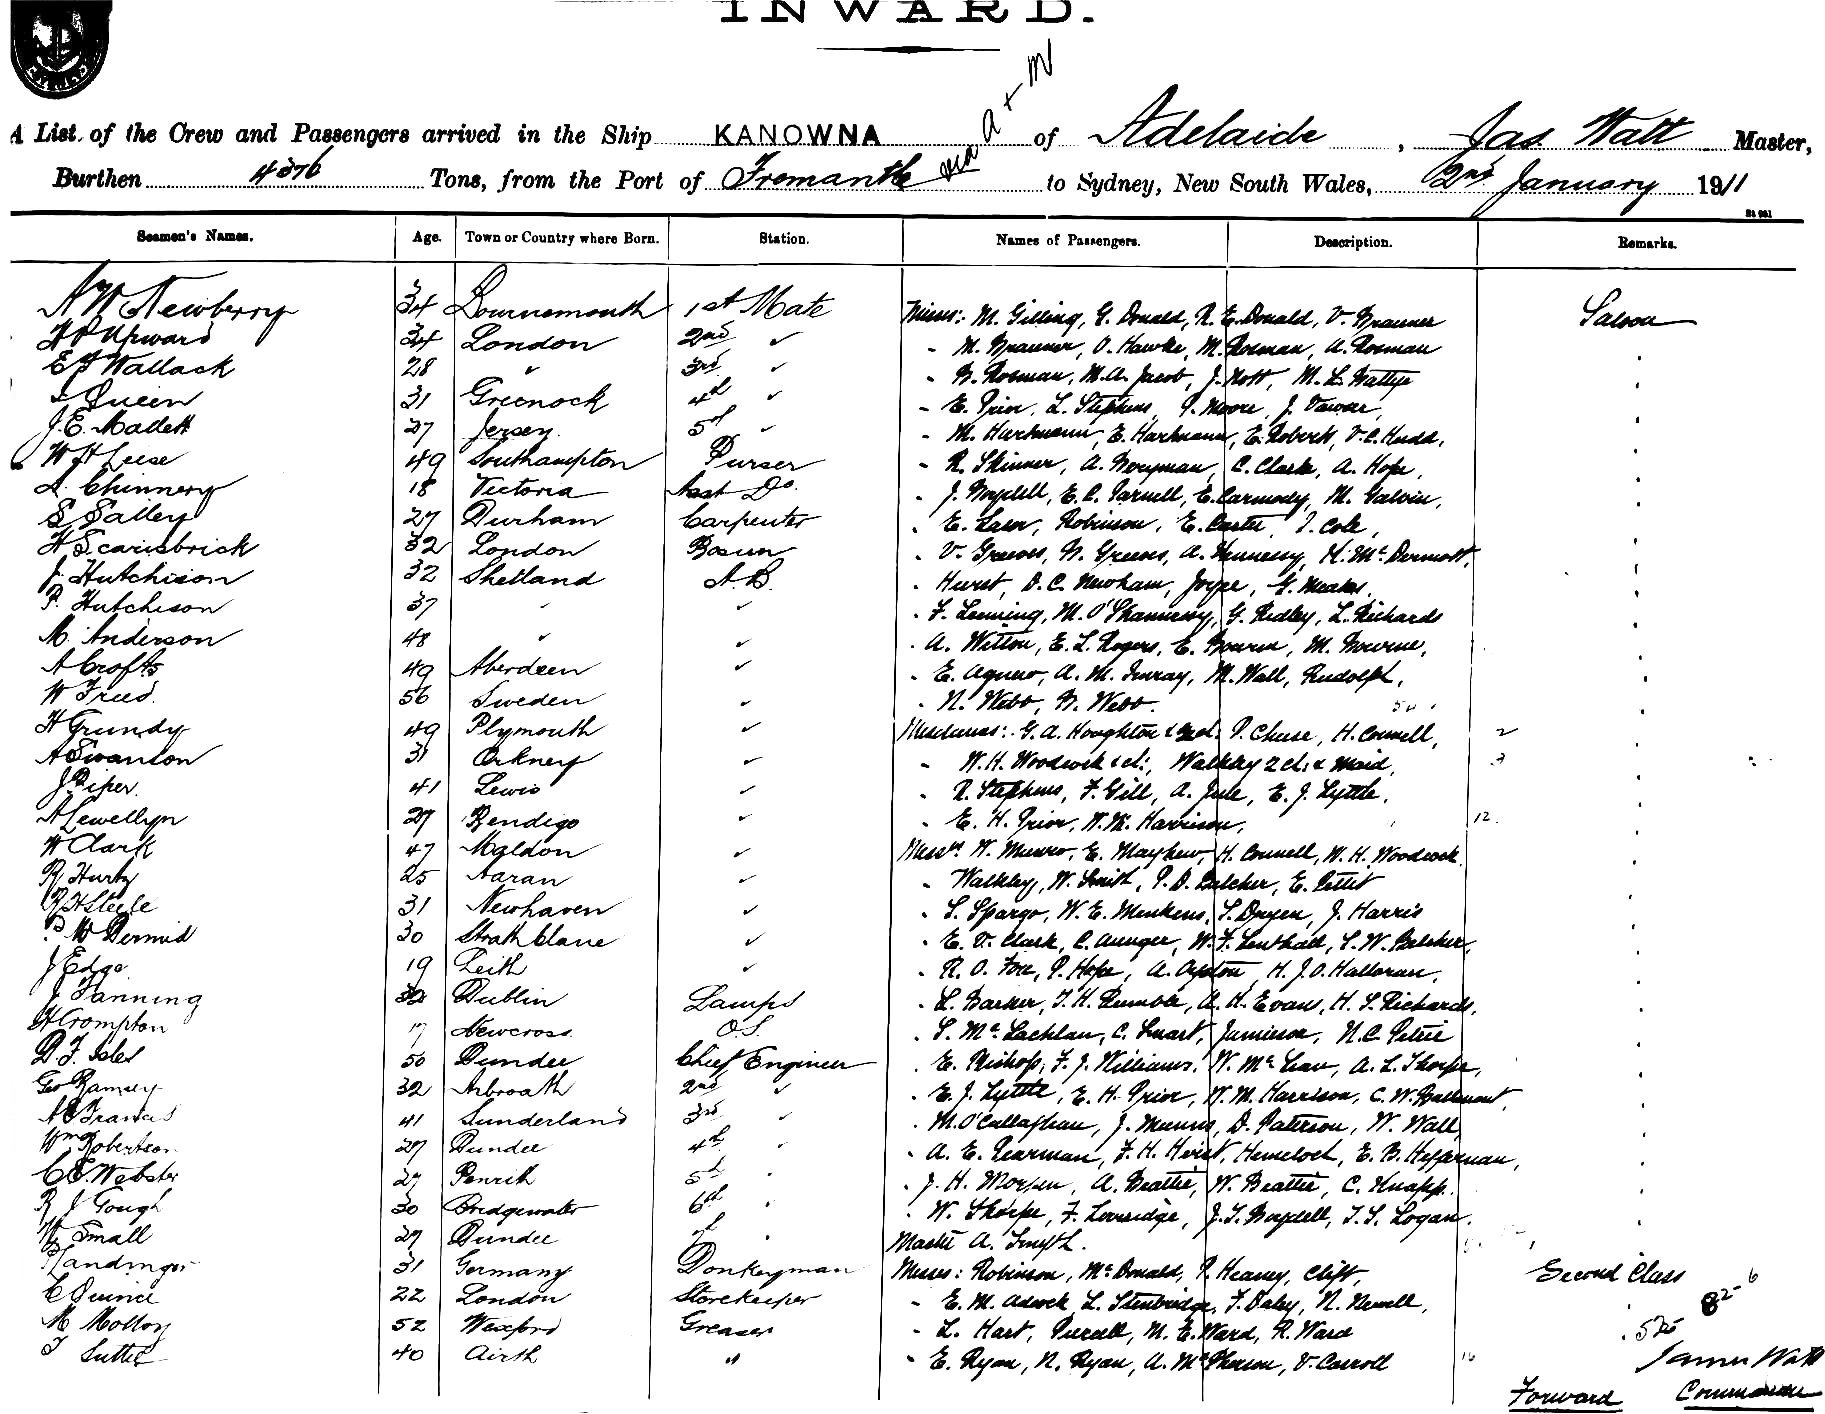 INWARD.
A List of the Crew and Passengers arrived in the Ship KANOWNA of Adelaide, Jas Watt Master,
via A + M
Burthen 4376 Tons, from the Port of Fremantle to Sydney, New South Wales, 2nd January 1911
Seamen's Names. Age. Town or Country where Born. Station. Names of Passengers. Description. Remarks.
A W Newberry 34 Bournemouth 1st Mate Misses: M. Gilling, G. Donald, R. E. Donald, V. Brauner Saloon
H P Upward 34 London 2nd ✓ - M. Brauner, O. Hawke, M. Rosman, A. Rosman
E J Wallack 28 " 3rd ✓ - B. Rosman, M.A. Jacob, J. Nott, M. L. Battye
Queen 31 Greenock 4th ✓ - E. Prior, L. Stephens, P. Moore, J. Dawar,
J. E. Mallett 27 Jersey. 5th ✓ - M. Hartmann, E. Hartmann, E. Roberts, V. C. Hudd,
W H Leese 49 Southampton Purser - R. Skinner, A. Berryman, C. Clark, A. Hope,
A. Chinnery 18 Victoria Asst Do. - J. Boydell, E. C. Parnell, E. Carmody, M. Galvin,
S Salley 27 Durham Carpenter - E. Laser, Robinson, E. Carter, I. Cole,
H Scarisbrick 32 London Bosun - V. Greeves, B. Greeves, A. Hennessy, K. McDermott,
J. Hutchison 32 Shetland A.B. - Hurst, D. C. Newham, Joype, G. Meakes,
P. Hutchison 37 " ✓ - F. Leeming, M. O'Shannessy, G. Ridley, L. Richards
M. Anderson 48 " ✓ - A. Witton, E. L. Rogers, E. Bourne, M. Bourne,
A Crofts 49 Aberdeen ✓ - E. Agnew, A. M. Imray, M. Wall, Rudolph,
W Freed. 56 Sweden ✓ - N. Webb, B. Webb.
H Grundy 49 Plymouth ✓ Mesdames: G. A. Houghton & P. Chase, H. Connell, 2
A Swanson 31 Orkney ✓ - W. H. Woodcock & ch:, Walkley 2 ch: & Maid, 3
J Piper. 41 Lewis ✓ - R. Stephens, F. Gill, A. Jule, E. J. Lyttle,
A Lewellyn 27 Bendigo ✓ - E. H. Prior, W. M. Harrison, 12
W Clark 47 Maldon ✓ Messrs W. Munro, E. Mayhew, H. Connell, W. H. Woodcock
R Hurtz 25 Aaran ✓ - Walkley, W. Smith, P. D. Belcher, E. Pettit
R H Steele 31 Newhaven ✓ - S. Spargo, W. E. Menkens, S. Dryen, J. Harris
P McDermid 30 Strathblane ✓ - E. V. Clark, C. Aunger, W. F. Lenthall, L. W. Belcher,
J Edge. 19 Leith ✓ - R. O. Fox, P. Hope, A. Ayston, H. J. O. Halloran,
J Fanning 32 Dublin Lamps - L. Barker, T. H. Rumble, A. H. Evans, H. S. Richards,
H Crompton 17 Newcross O.S. - S. McLachlan, C. Smart, Jamieson, N. C. Petrie
D. F. Isles 50 Dundee Chief Engineer - E. Bishop, F. J. Williams, W. McLean, A. L. Thorpe,
Geo Ramsey 32 Arbroath 2nd " - E. J. Lyttle, E. H. Prior, W. M. Harrison, C. W.
A Francis 41 Sunderland 3rd ✓ - M. O'Callaghan, J. Munns, D. Paterson, W. Wall,
Wm Robertson 27 Dundee 4th - A. E. Pearman, F. H. Heist, Hemeloch, E. B. Heffernan,
C E. Webster 27 Penrith 5th - J. H. Morsen, A. Beattie, W. Beattie, C. Knapp.
R J Gough 30 Bridgewater 6th - W. Thorpe, F. Loveridge, J. S. Boydell, T. S. Logan.
W Small 27 Dundee Master A. Smyth.
Plandinger 31 Germany Donkeyman Misses: Robinson, McDonald, P. Heaney, Clift, Second Class
C Quince 22 London Storekeeper - E. M. Adcock, L. Stenbridge, F. Daley, N. Newell, 82 6
M Molloy 52 Wexford Greaser - L. Hart, Purcell, M. E. Ward, R. Ward 525
T Suttie 40 Airth " - E. Ryan, N. Ryan, A. McPherson, V. Carroll 16 James Watt
Forward Commander